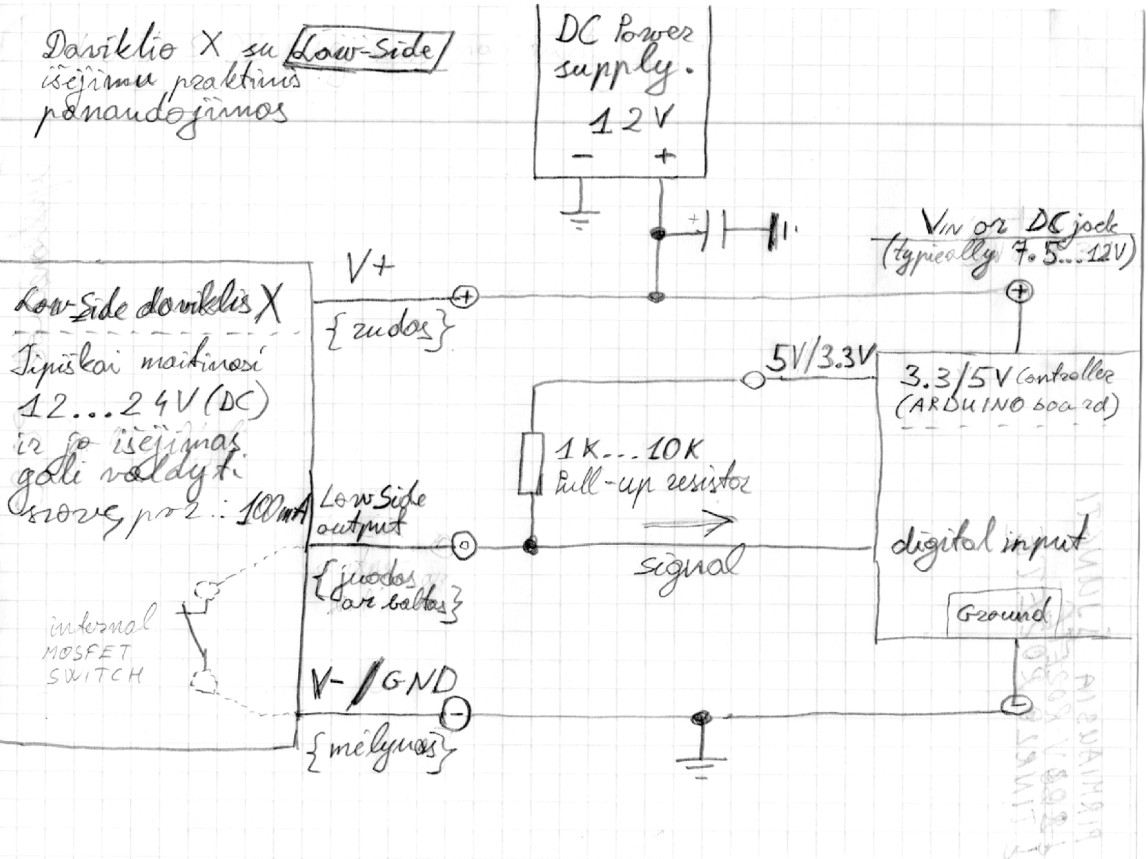 Daviklio X su Low-Side
išėjimu praktinis
panaudojimas
DC Power
supply.
12V
- +
+
VIN or DC jack
(typically 7.5...12V)
V+
+
+
{rudas}
Low-Side daviklis X
Tipiškai maitinasi
12...24V (DC)
ir jo išėjimas
gali valdyti
srovę, pvz.: 100mA
5V/3.3V
3.3/5V Controller
(ARDUINO board)
1K...10K
Pull-up resistor
Low Side
output
signal
digital input
{juodas
ar baltas}
Ground
internal
MOSFET
SWITCH
V- / GND
-
-
{mėlynas}